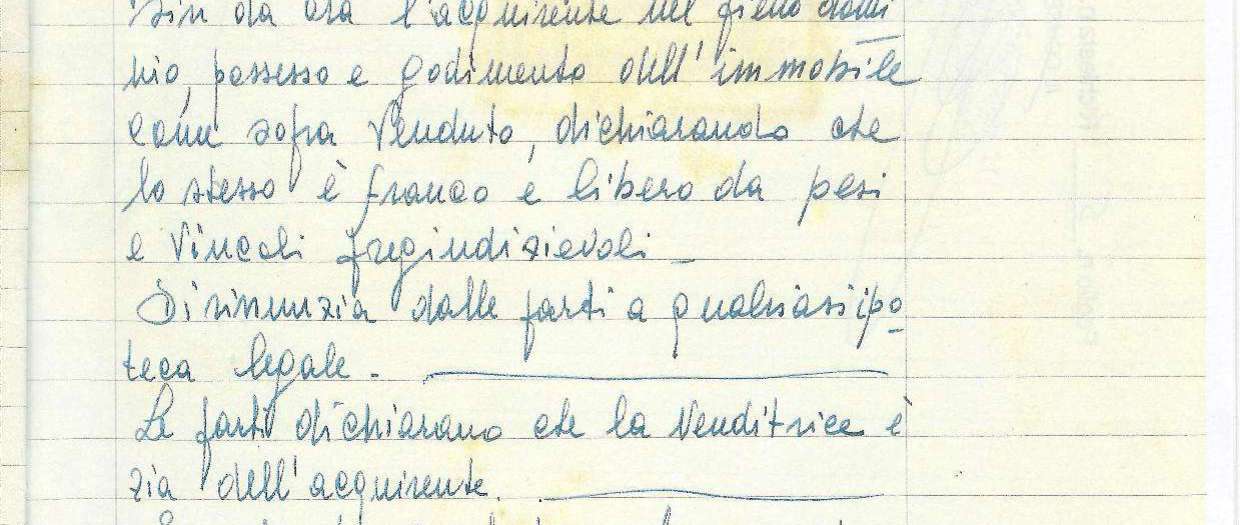 sin da ora l'acquirente nel pieno domi
nio, possesso e godimento dell'immobile
come sopra venduto, dichiarando che
lo stesso è franco e libero da pesi
e vincoli pregiudizievoli -
Si rinunzia dalle parti a qualsiasi ipo
teca legale -
Le parti dichiarano che la venditrice è
zia dell'acquirente.